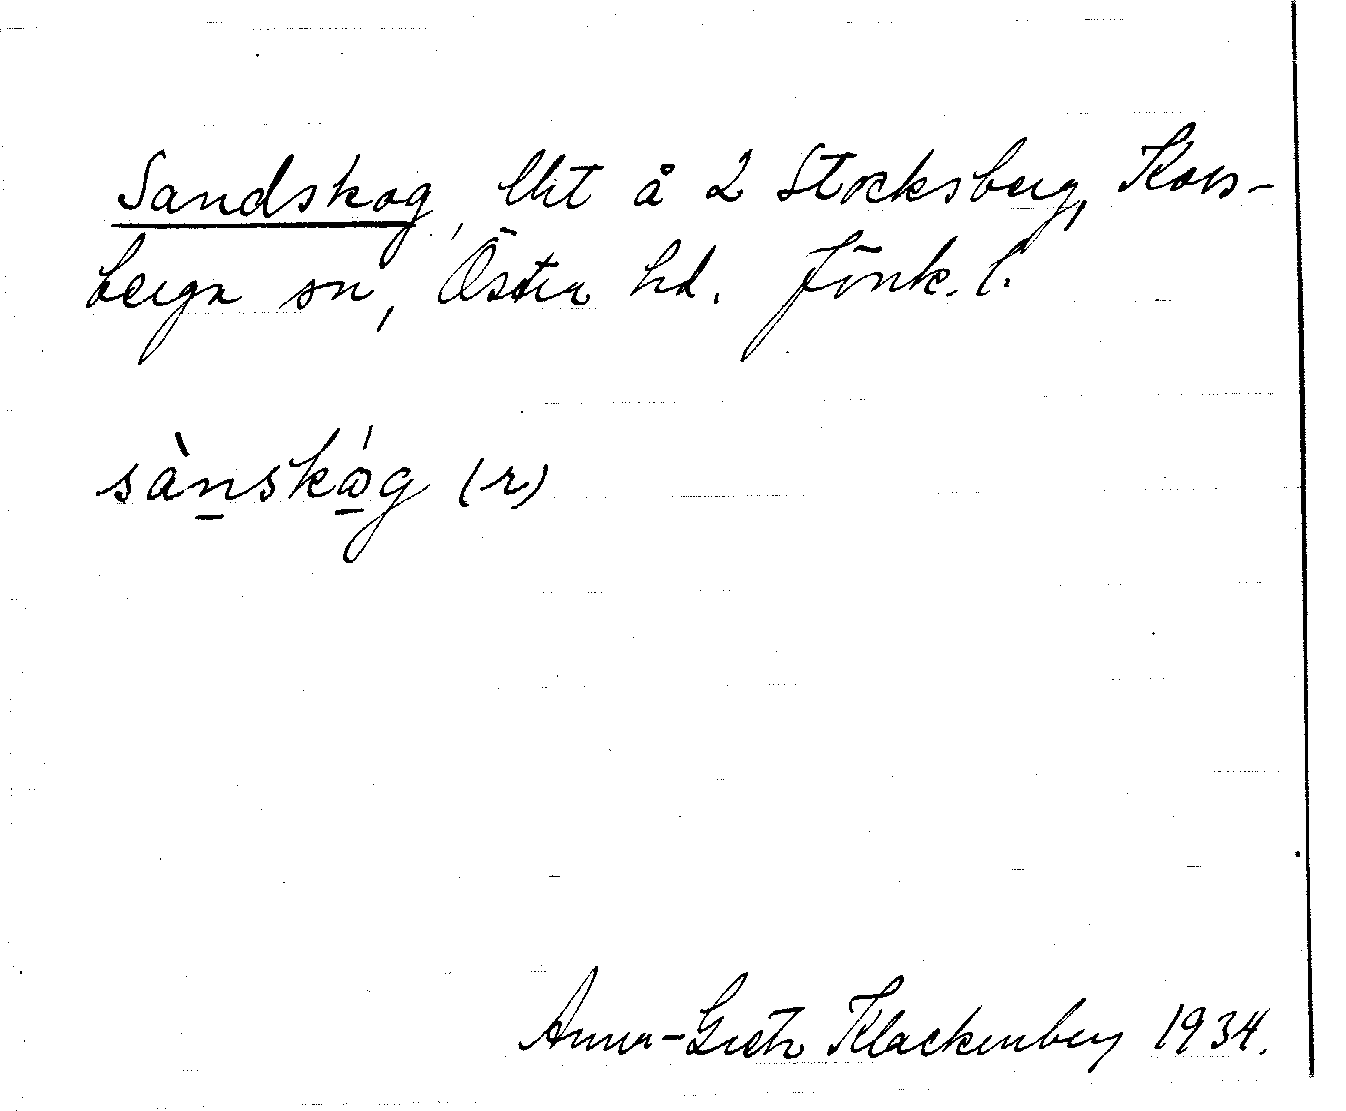 Sandskog, lht å 2 Stocksberg, Kors-
berga sn, Östra hd. Jönk. l.
sànskǻg (r)
Anna-Greta Klackenberg 1934.